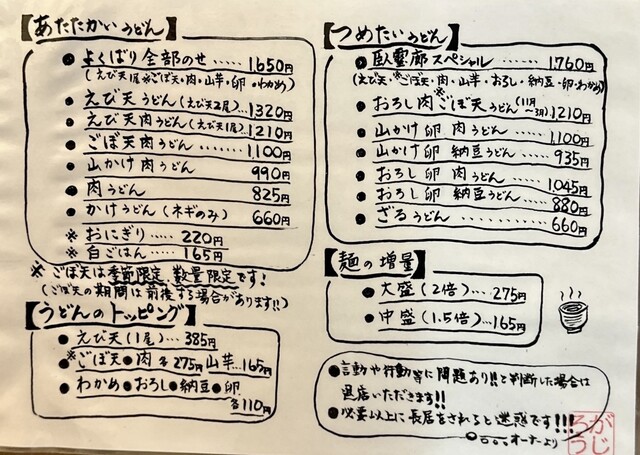 【あたたかいうどん】
●よくばり全部のせ……1,650円
(えび天1尾※ごぼ天・肉・山芋・卵・わかめ)
●えび天うどん(えび天2尾)…1,320円
●えび天肉うどん(えび天1尾)…1,210円
●ごぼ天肉うどん……1,100円
●山かけ肉うどん 990円
●肉うどん 825円
●かけうどん(ネギのみ) 660円
※おにぎり…220円
※白ごはん…165円
※ごぼ天は季節限定、数量限定です!
(ごぼ天の期間は前後する場合があります!!)
【うどんのトッピング】
●えび天(1尾)…385円
●※ごぼ天●肉各275円 山芋…165円
●わかめ●おろし●納豆●卵
各110円
【つめたいうどん】
●臥靈廊スペシャル……1,760円
(えび天・※ごぼ天・肉・山芋・おろし・納豆・卵・わかめ)
●おろし肉※ごぼ天うどん(11月〜3月)1,210円
●山かけ卵肉うどん……1,100円
●山かけ卵納豆うどん……935円
●おろし卵肉うどん……1,045円
●おろし卵納豆うどん……880円
●ざるうどん……660円
【麺の増量】
●大盛(2倍)…275円
●中盛(1.5倍)…165円
●言動や行動等に問題あり!!と判断した場合は
退店いただきます!!
●必要以上に長居をされると迷惑です!!!
オーナーより
がじろう